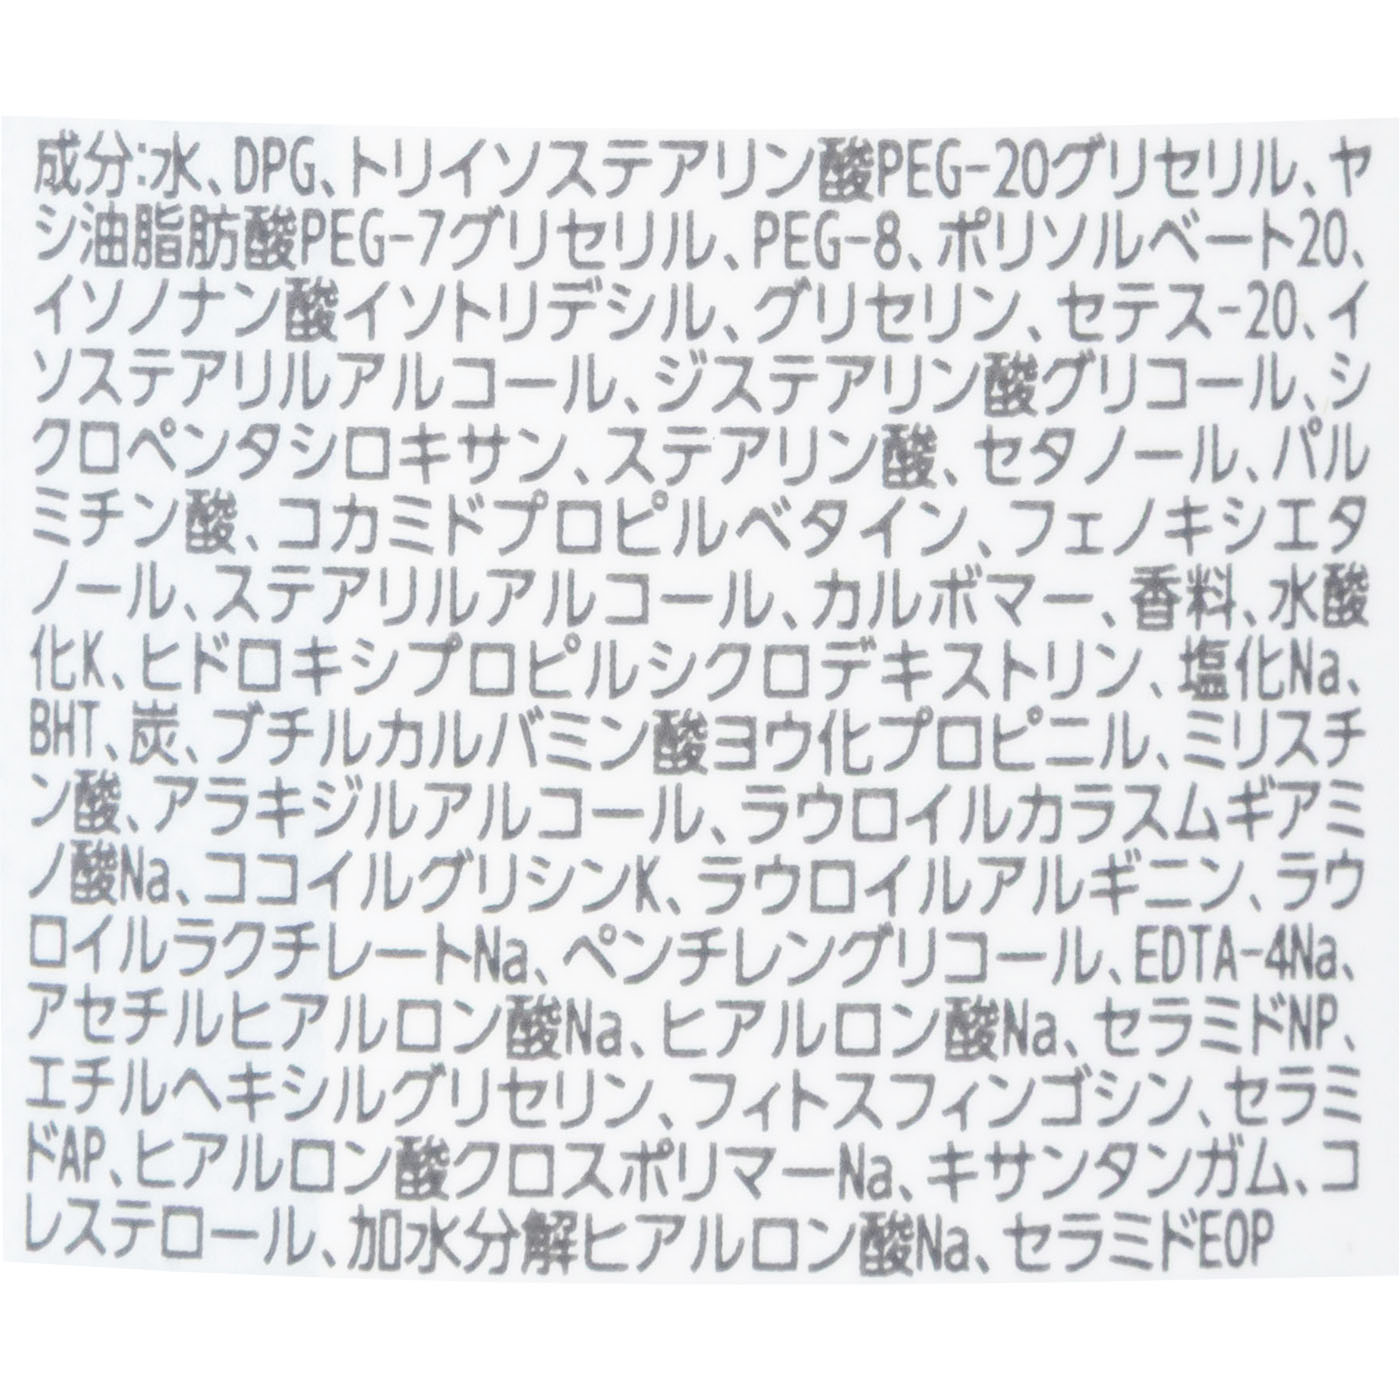 成分:水、DPG、トリイソステアリン酸PEG-20グリセリル、ヤ
シ油脂肪酸PEG-7グリセリル、PEG-8、ポリソルベート20、
イソノナン酸イソトリデシル、グリセリン、セテス-20、イ
ソステアリルアルコール、ジステアリン酸グリコール、シ
クロペンタシロキサン、ステアリン酸、セタノール、パル
ミチン酸、コカミドプロピルベタイン、フェノキシエタ
ノール、ステアリルアルコール、カルボマー、香料、水酸
化K、ヒドロキシプロピルシクロデキストリン、塩化Na、
BHT、炭、ブチルカルバミン酸ヨウ化プロピニル、ミリスチ
ン酸、アラキジルアルコール、ラウロイルカラスムギアミ
ノ酸Na、ココイルグリシンK、ラウロイルアルギニン、ラウ
ロイルラクチレートNa、ペンチレングリコール、EDTA-4Na、
アセチルヒアルロン酸Na、ヒアルロン酸Na、セラミドNP、
エチルヘキシルグリセリン、フィトスフィンゴシン、セラミ
ドAP、ヒアルロン酸クロスポリマーNa、キサンタンガム、コ
レステロール、加水分解ヒアルロン酸Na、セラミドEOP